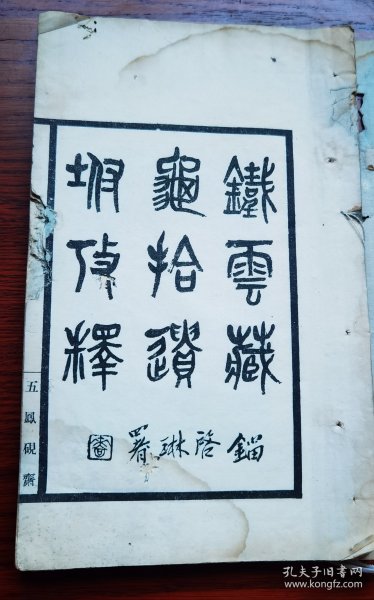 鐵雲藏
龜拾遺
坿攷釋
鎦啓琳署
五鳳硯齋
孔夫子旧书网
www.kongfz.com